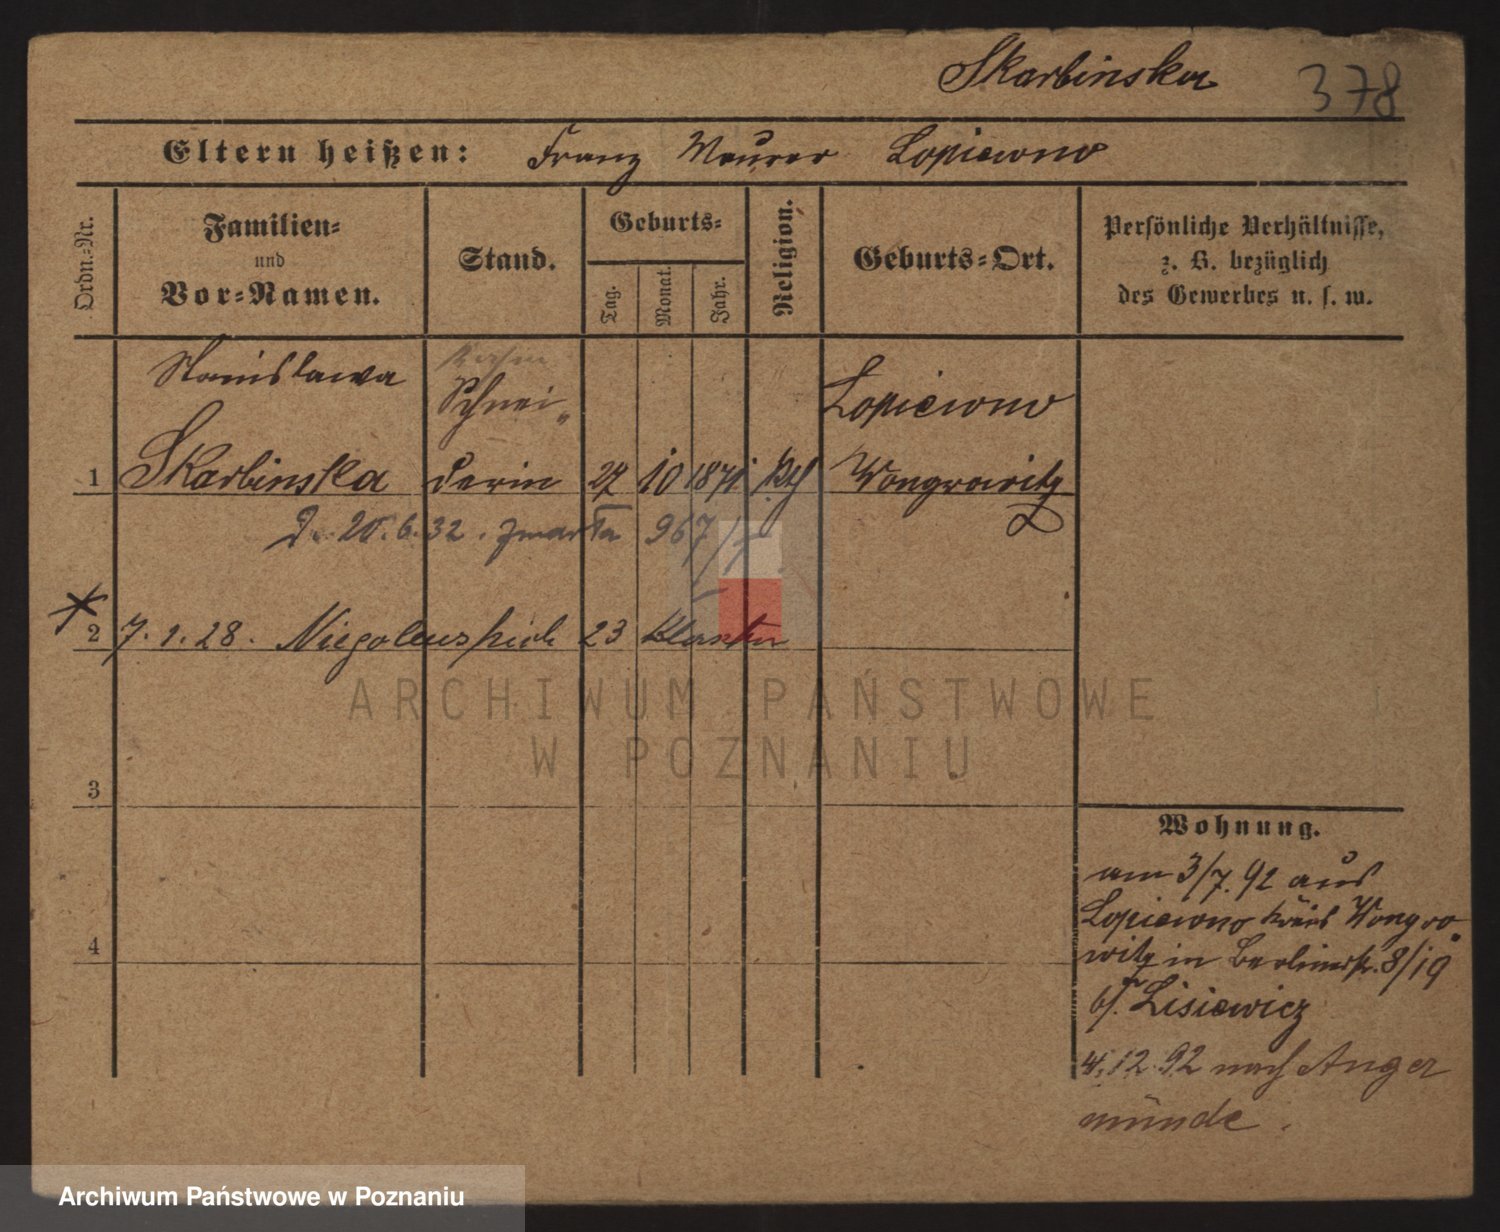 Skarbinska 378
Eltern heißen: Franz Maurer Lopiewno
Ordn.-Nr.
Familien-
und
Vor-Namen.
Stand.
Geburts-
Tag.
Monat.
Jahr.
Religion.
Geburts-Ort.
Persönliche Verhältnisse,
z. B. bezüglich
des Gewerbes u. s. w.
Stanislawa Schnei- Lopiewno
1 Skarbinska derin 27 10 1871 kth Wongrowitz
20.6.32. zmarła 967/
2 7.1.28. Niegolewskich 23
ARCHIWUM PAŃSTWOWE
W POZNANIU
3
4
Wohnung.
am 3/7.92 aus
Lopiewno Kreis Wongro-
witz in Berlinerstr. 8/19
bf. Lisiewicz
4.12.92 nach Anger
münde.
Archiwum Państwowe w Poznaniu